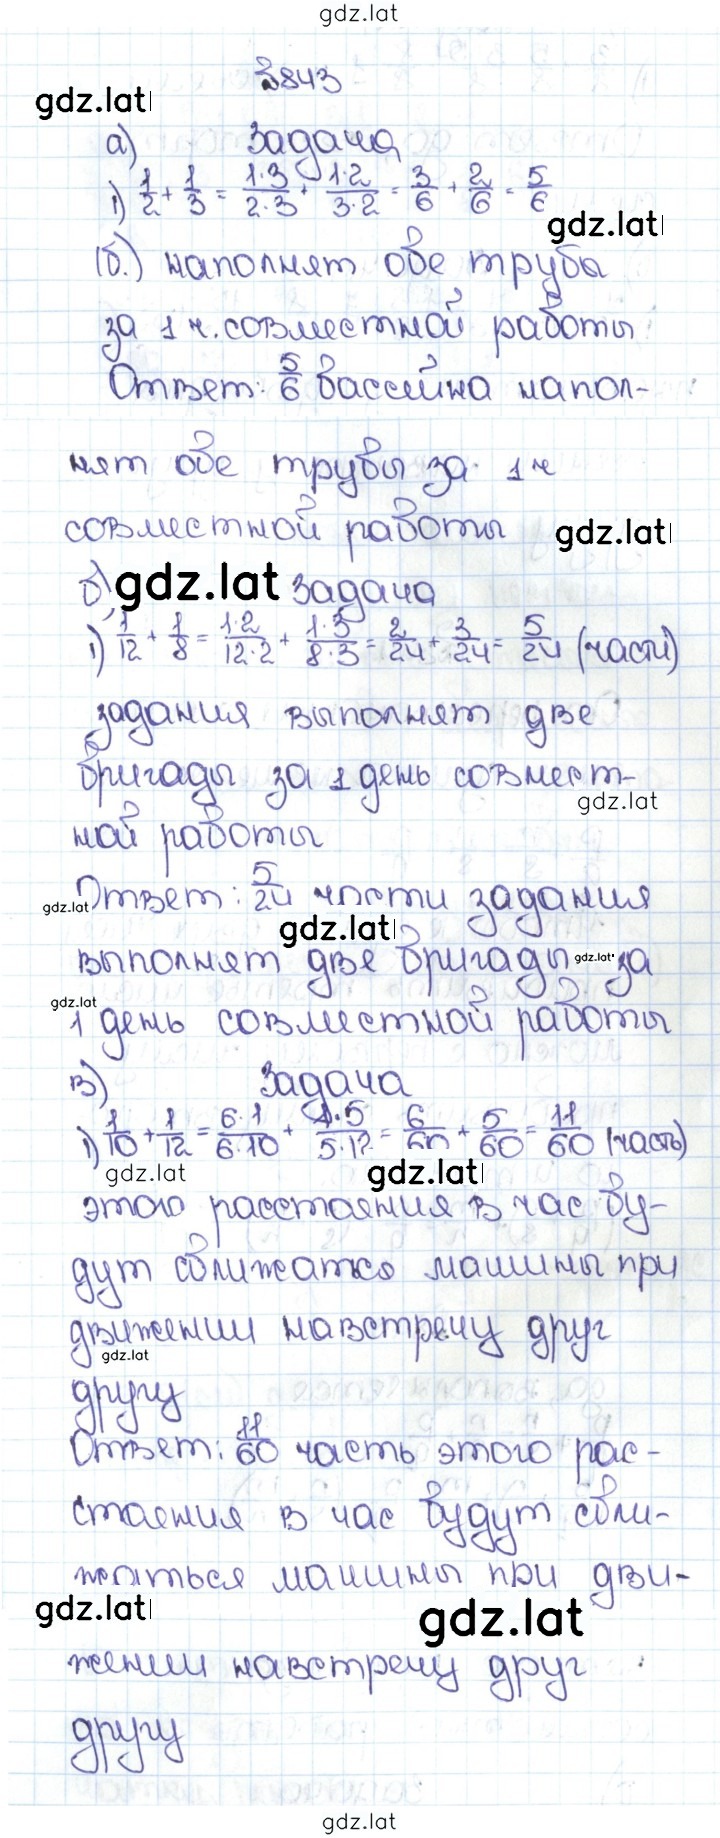 gdz.lat
№843
gdz.lat
а) Задача
1) 1/2 + 1/3 = 1·3/2·3 + 1·2/3·2 = 3/6 + 2/6 = 5/6
gdz.lat
(б.) наполнят обе трубы
за 1 ч. совместной работы
Ответ: 5/6 бассейна напол-
нят обе трубы за 1 ч
совместной работы
gdz.lat
б) gdz.lat задача
1) 1/12 + 1/8 = 1·2/12·2 + 1·3/8·3 = 2/24 + 3/24 = 5/24 (части)
задания выполнят две
бригады за 1 день совмест-
gdz.lat
ной работы
Ответ: 5/24 части задания
gdz.lat
gdz.lat
выполнят две бригады за
gdz.lat
gdz.lat
1 день совместной работы
в) Задача
1) 1/10 + 1/12 = 6·1/6·10 + 1·5/5·12 = 6/60 + 5/60 = 11/60 (часть)
gdz.lat gdz.lat
этого расстаяния в час бу-
дут сближатко машины при
движении навстречу друг
gdz.lat
другу
Ответ: 11/60 часть этого рас-
стаяния в час будут сбли-
жаться машины при дви-
gdz.lat gdz.lat
жении навстречу друг
другу
gdz.lat